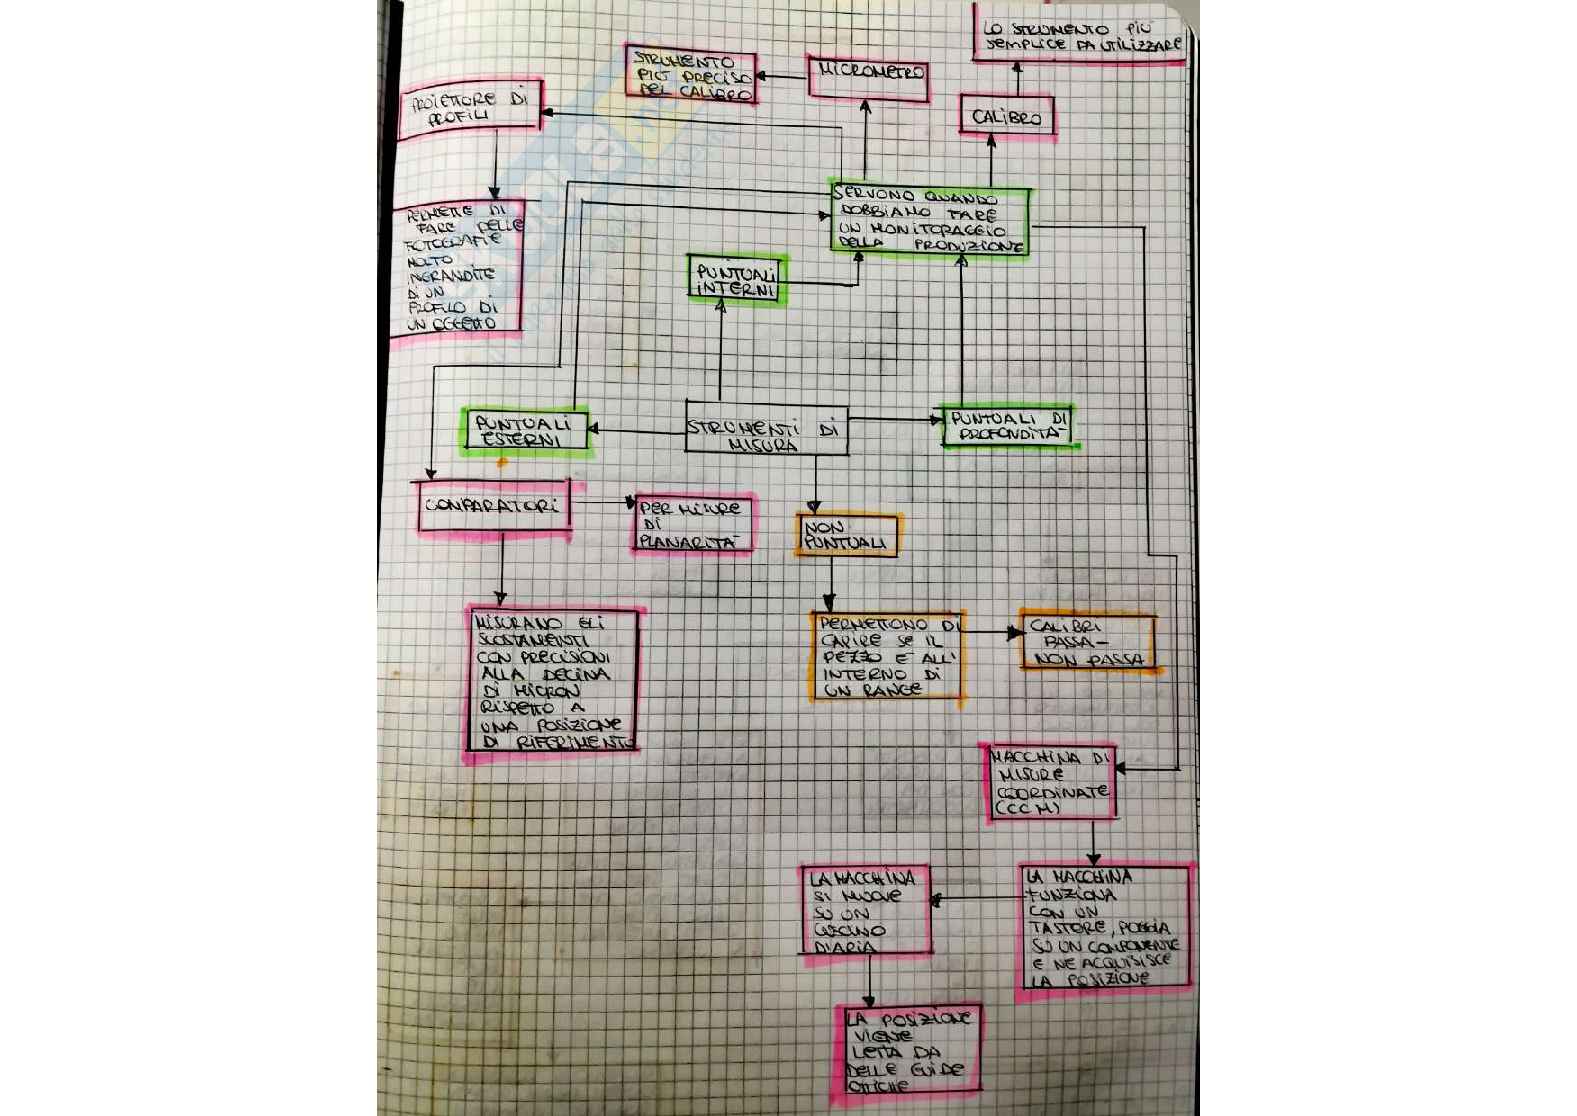 LO STRUMENTO PIÙ
SEMPLICE DA UTILIZZARE
STRUMENTO
PIÙ PRECISO
DEL CALIBRO
MICROMETRO
CALIBRO
PROIETTORE DI
PROFILI
SERVONO QUANDO
DOBBIAMO FARE
UN MONITORAGGIO
DELLA PRODUZIONE
PERMETTE DI
FARE DELLE
FOTOGRAFIE
MOLTO
INGRANDITE
DI UN
PROFILO DI
UN OGGETTO
PUNTUALI
INTERNI
PUNTUALI
ESTERNI
STRUMENTI DI
MISURA
PUNTUALI DI
PROFONDITÀ
COMPARATORI
PER MISURE
DI
PLANARITÀ
NON
PUNTUALI
MISURANO GLI
SCOSTAMENTI
CON PRECISIONI
ALLA DECINA
DI MICRON
RISPETTO A
UNA POSIZIONE
DI RIFERIMENTO
PERMETTONO DI
CAPIRE SE IL
PEZZO È ALL'
INTERNO DI
UN RANGE
CALIBRI
PASSA-
NON PASSA
MACCHINA DI
MISURE
COORDINATE
(CCM)
LA MACCHINA
FUNZIONA
CON UN
TASTORE, POGGIA
SU UN COMPONENTE
E NE ACQUISISCE
LA POSIZIONE
LA MACCHINA
SI MUOVE
SU UN
CUSCINO
D'ARIA
LA POSIZIONE
VIENE
LETTA DA
DELLE GUIDE
OTTICHE